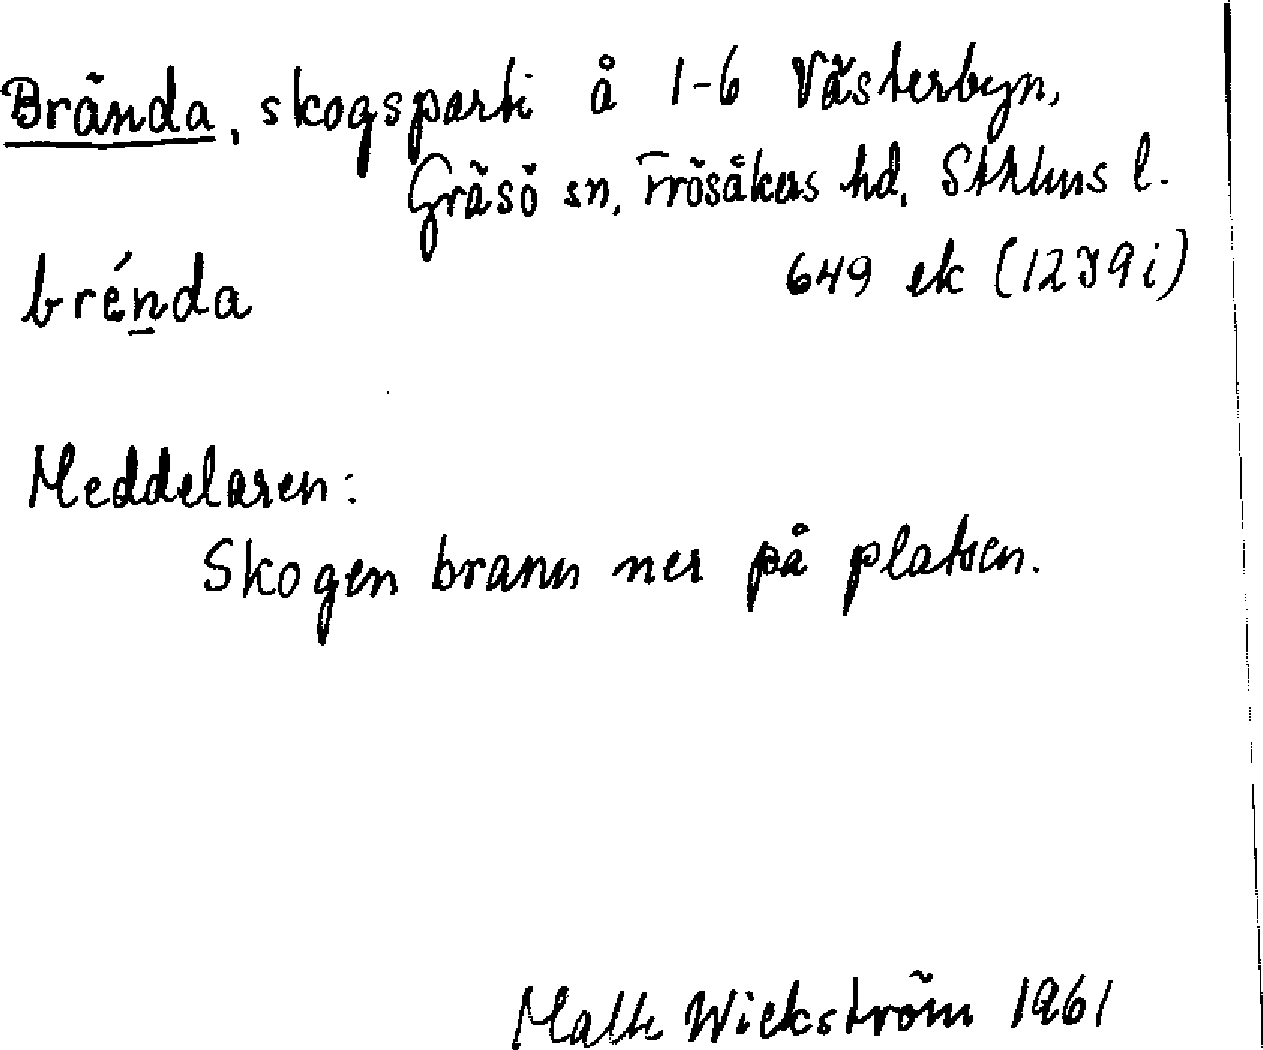 Brända, skogsparti å 1-6 Västerbyn,
Gräsö sn, Frösåkers hd, Sthlms l.
649 ek (12I9i)
brénda
Meddelaren:
Skogen brann ner på platsen.
Malte Wickström 1961